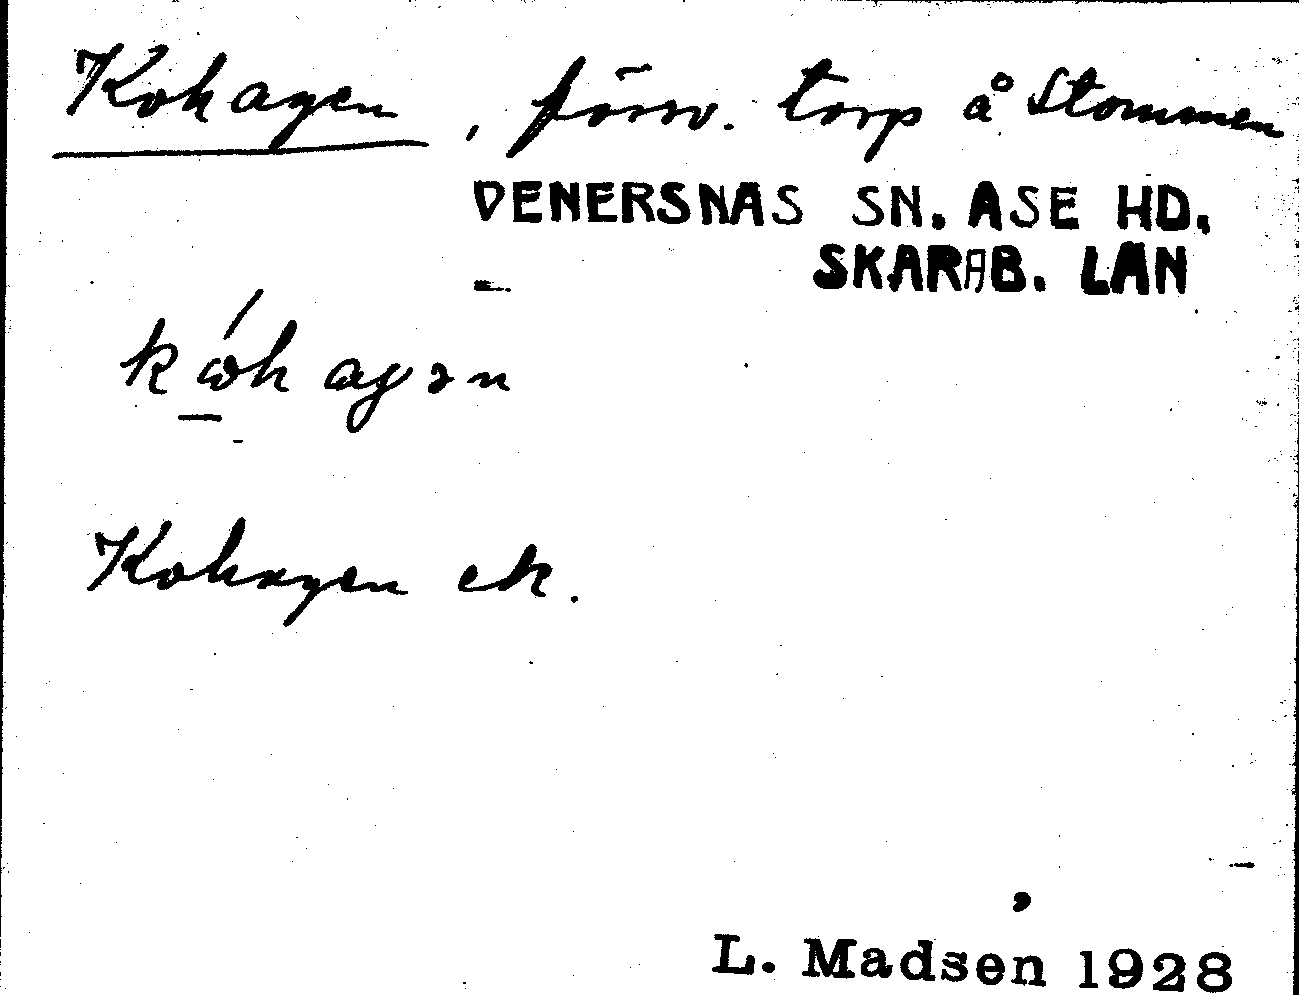 Kohagen, försv. torp å Stommen
VENERSNAS SN. ASE HD.
SKARAB. LÄN
Kohagen ek.
L. Madsen 1928